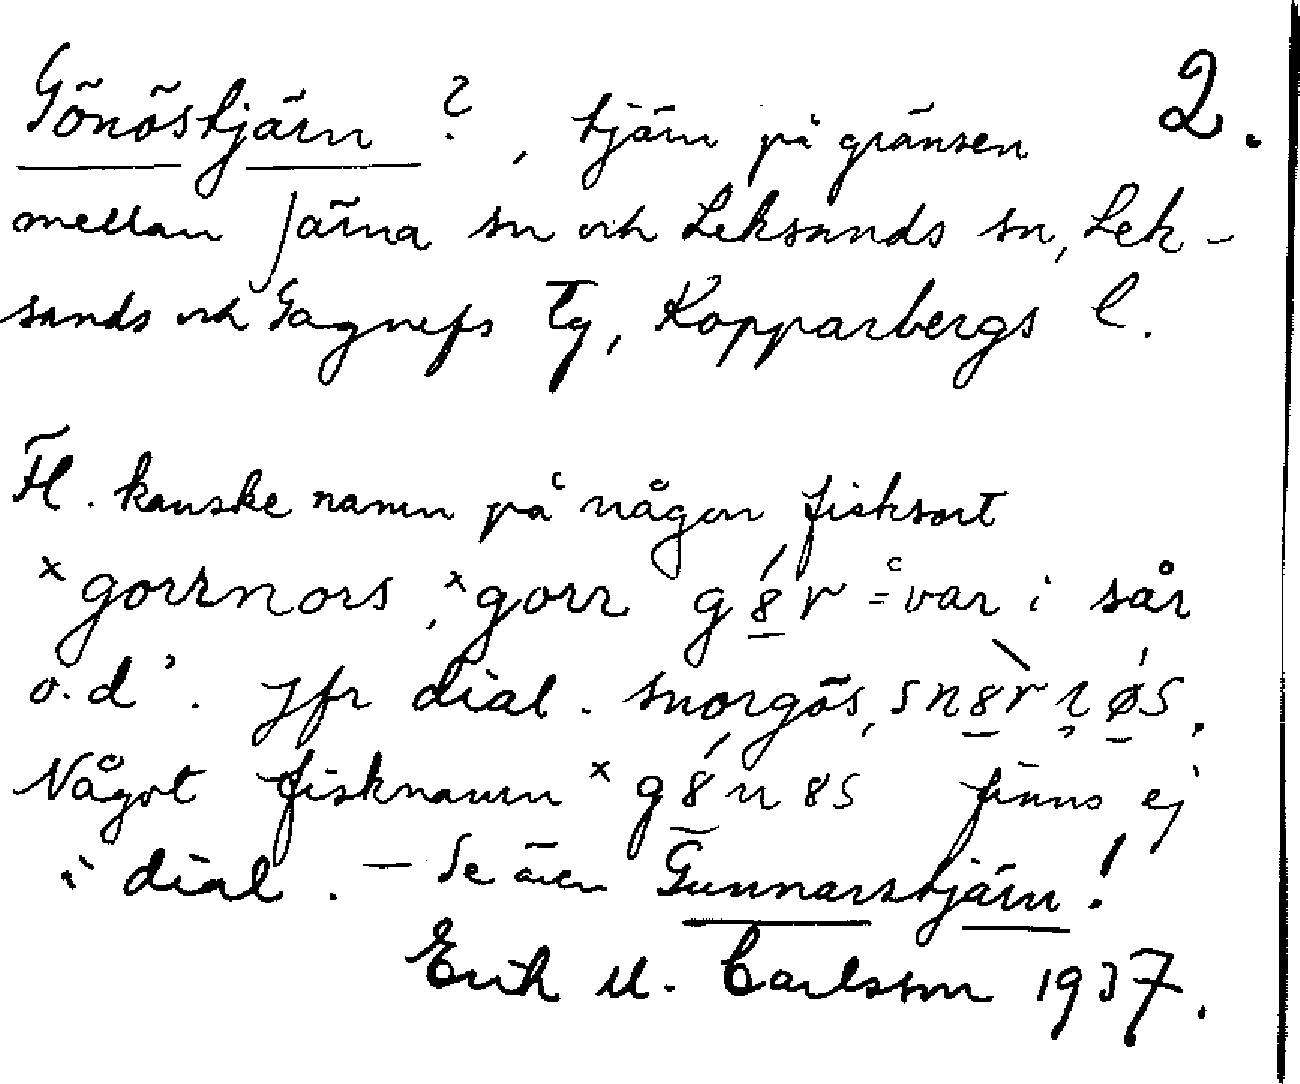 Gönöstjärn ?, tjärn på gränsen 2.
mellan Järna sn och Leksands sn, Lek-
sands och Gagnefs Tg, Kopparbergs l.
Fl. kanske namn på någon fisksort
×gorrnors, ×gorr g8́r = 'var i sår
o.d'. Jfr dial. snorgös, sn8̀rɿǿs.
Något fisknamn ×g8́n8s finns ej
i dial. — Se även Gunnarstjärn!
Erik M. Carlsson 1937.